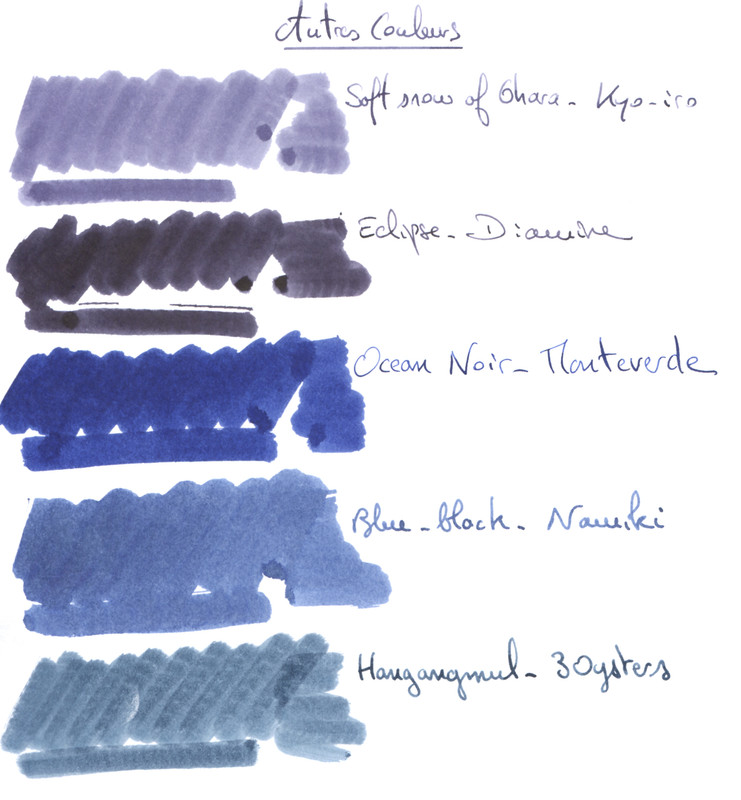 Autres Couleurs
Soft snow of Ohara - Kyo-iro
Eclipse - Diamine
Ocean Noir - Monteverde
Blue-black - Namiki
Hangangmul - 3 Oysters